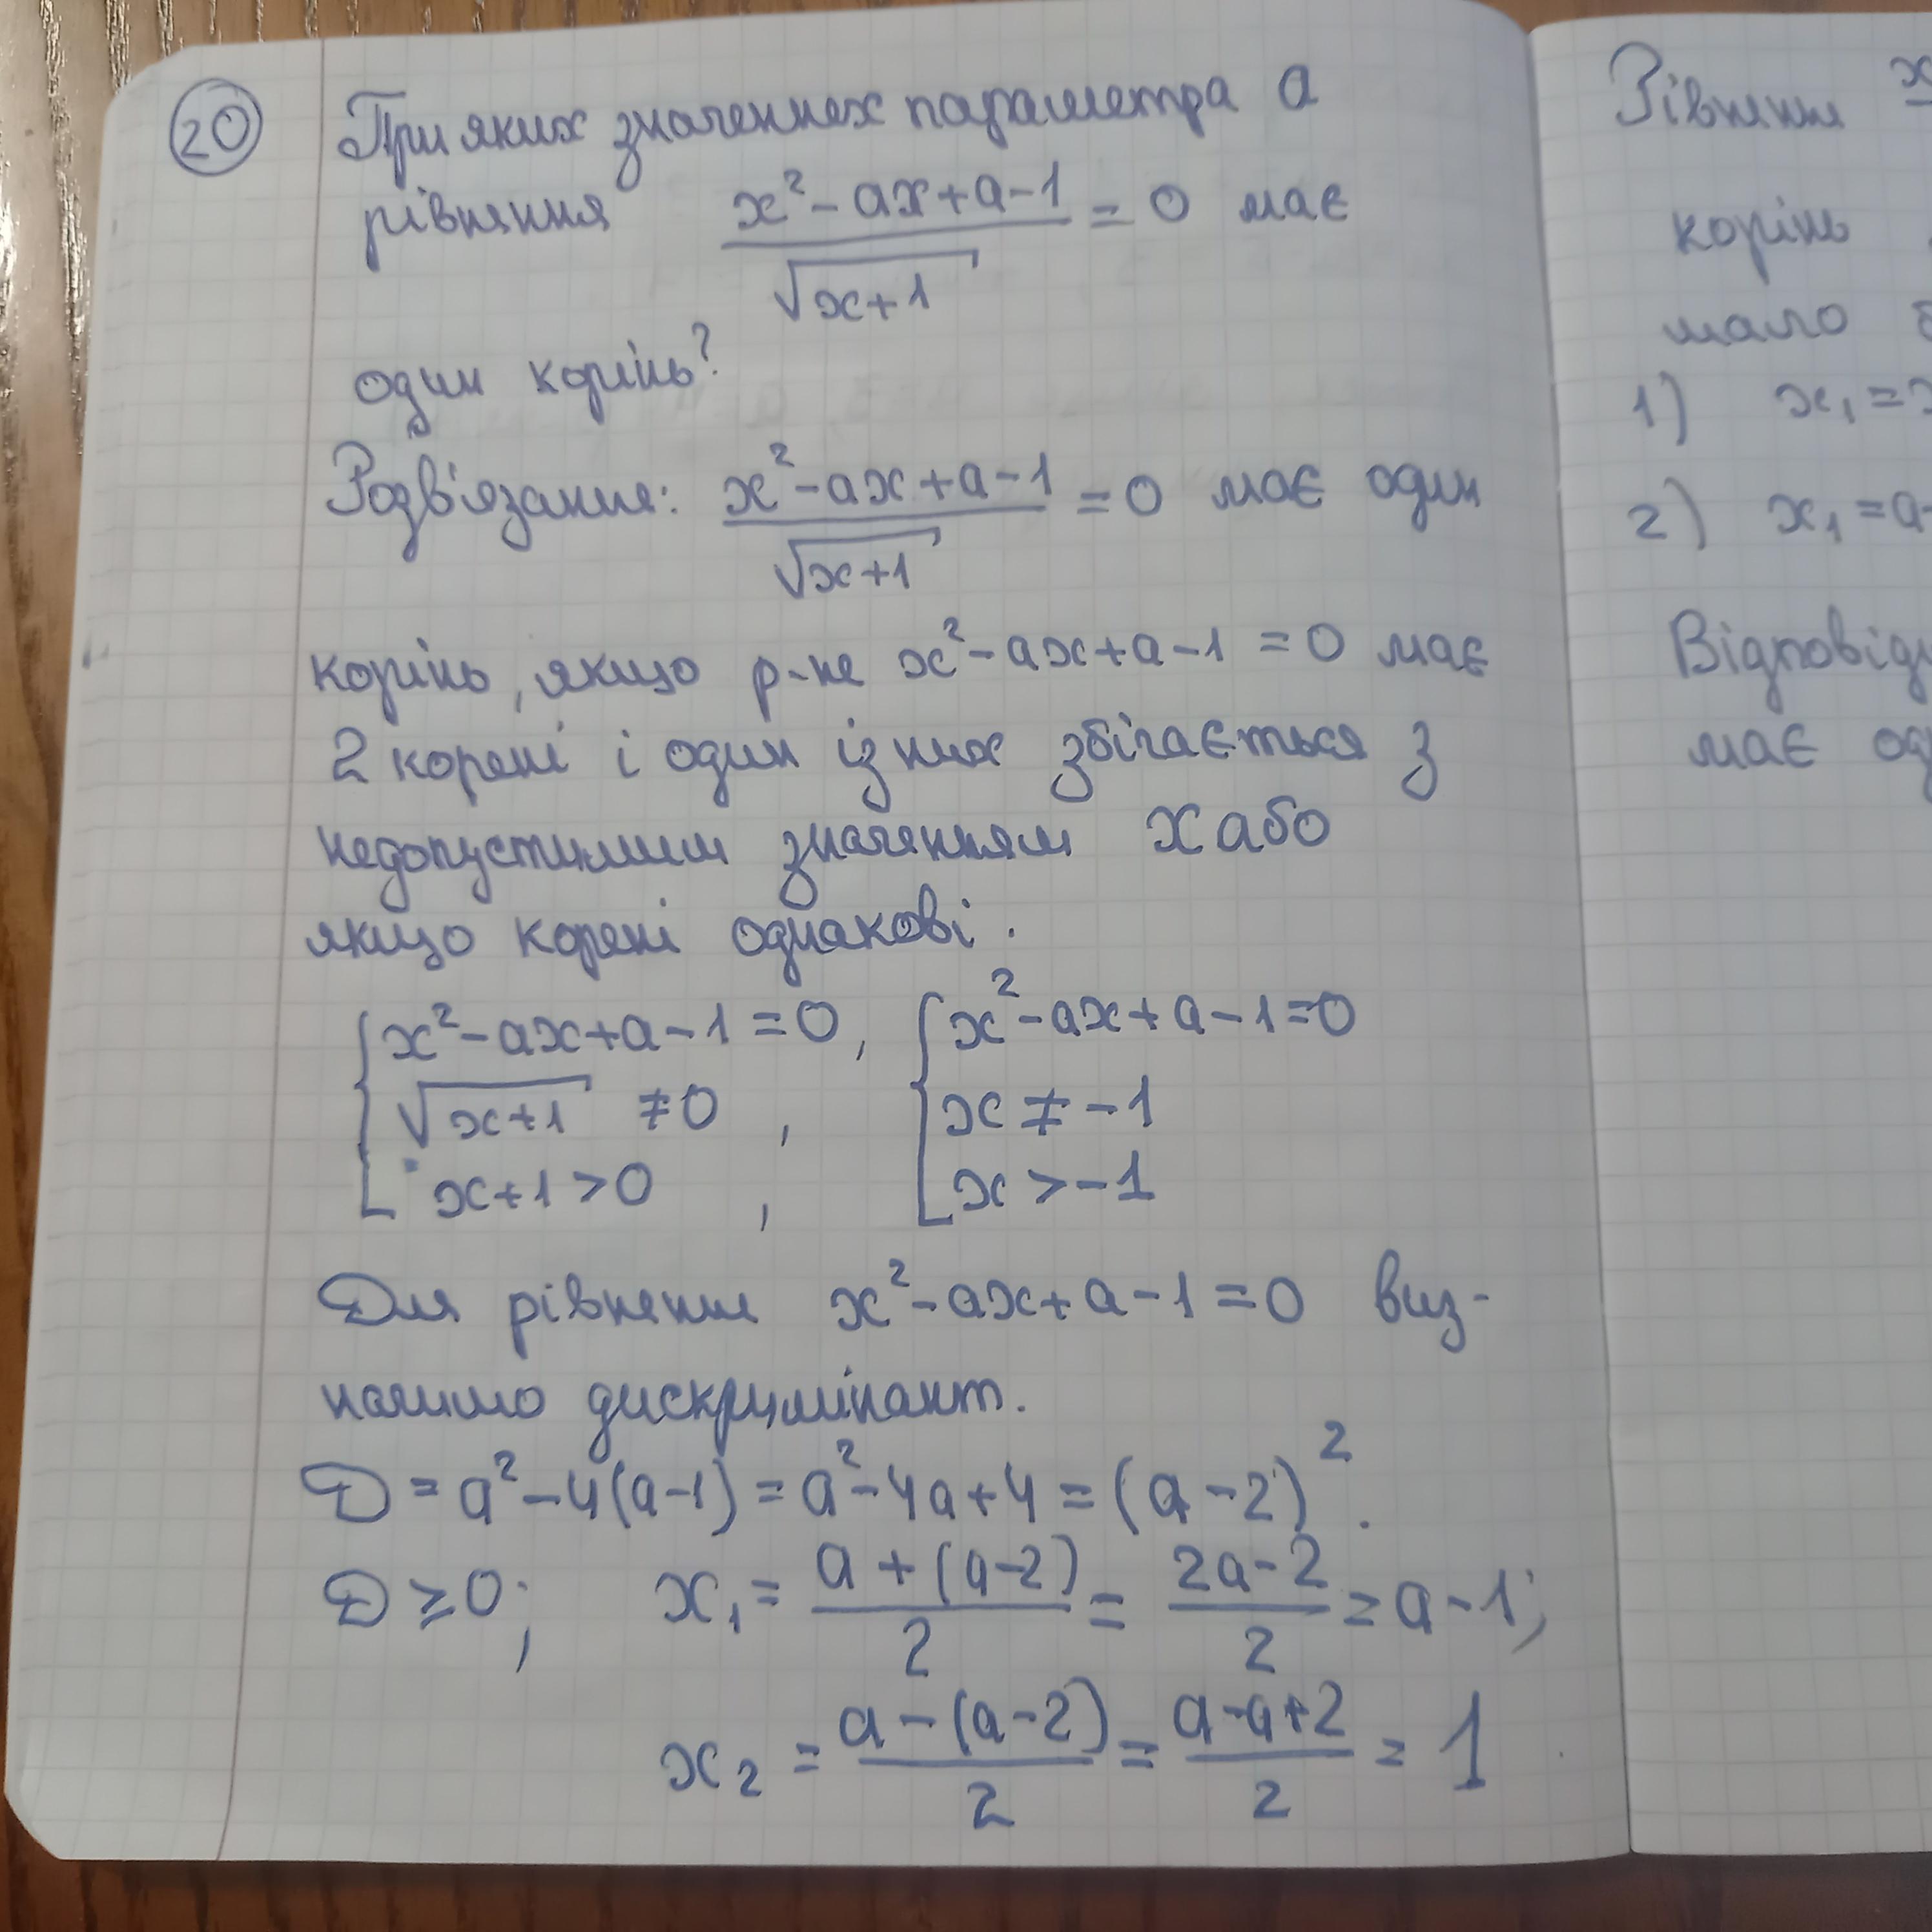 20 При яких значеннях параметра a
рівняння (x² - ax + a - 1)/√(x+1) = 0 має
один корінь?
Розв'язання: (x² - ax + a - 1)/√(x+1) = 0 має один
корінь, якщо р-не x² - ax + a - 1 = 0 має
2 корені і один із них збігається з
недопустимим значенням x або
якщо корені однакові.
{ x² - ax + a - 1 = 0, { x² - ax + a - 1 = 0
√(x+1) ≠ 0, x ≠ -1
x + 1 > 0, x > -1
Для рівняння x² - ax + a - 1 = 0 виз-
начимо дискримінант.
D = a² - 4(a-1) = a² - 4a + 4 = (a - 2)².
D ≥ 0; x₁ = (a + (a-2))/2 = (2a - 2)/2 = a - 1;
x₂ = (a - (a-2))/2 = (a - a + 2)/2 = 1
Рівняння x
корінь
мало
1) x₁ =
2) x₁ = a
Відповід
має од